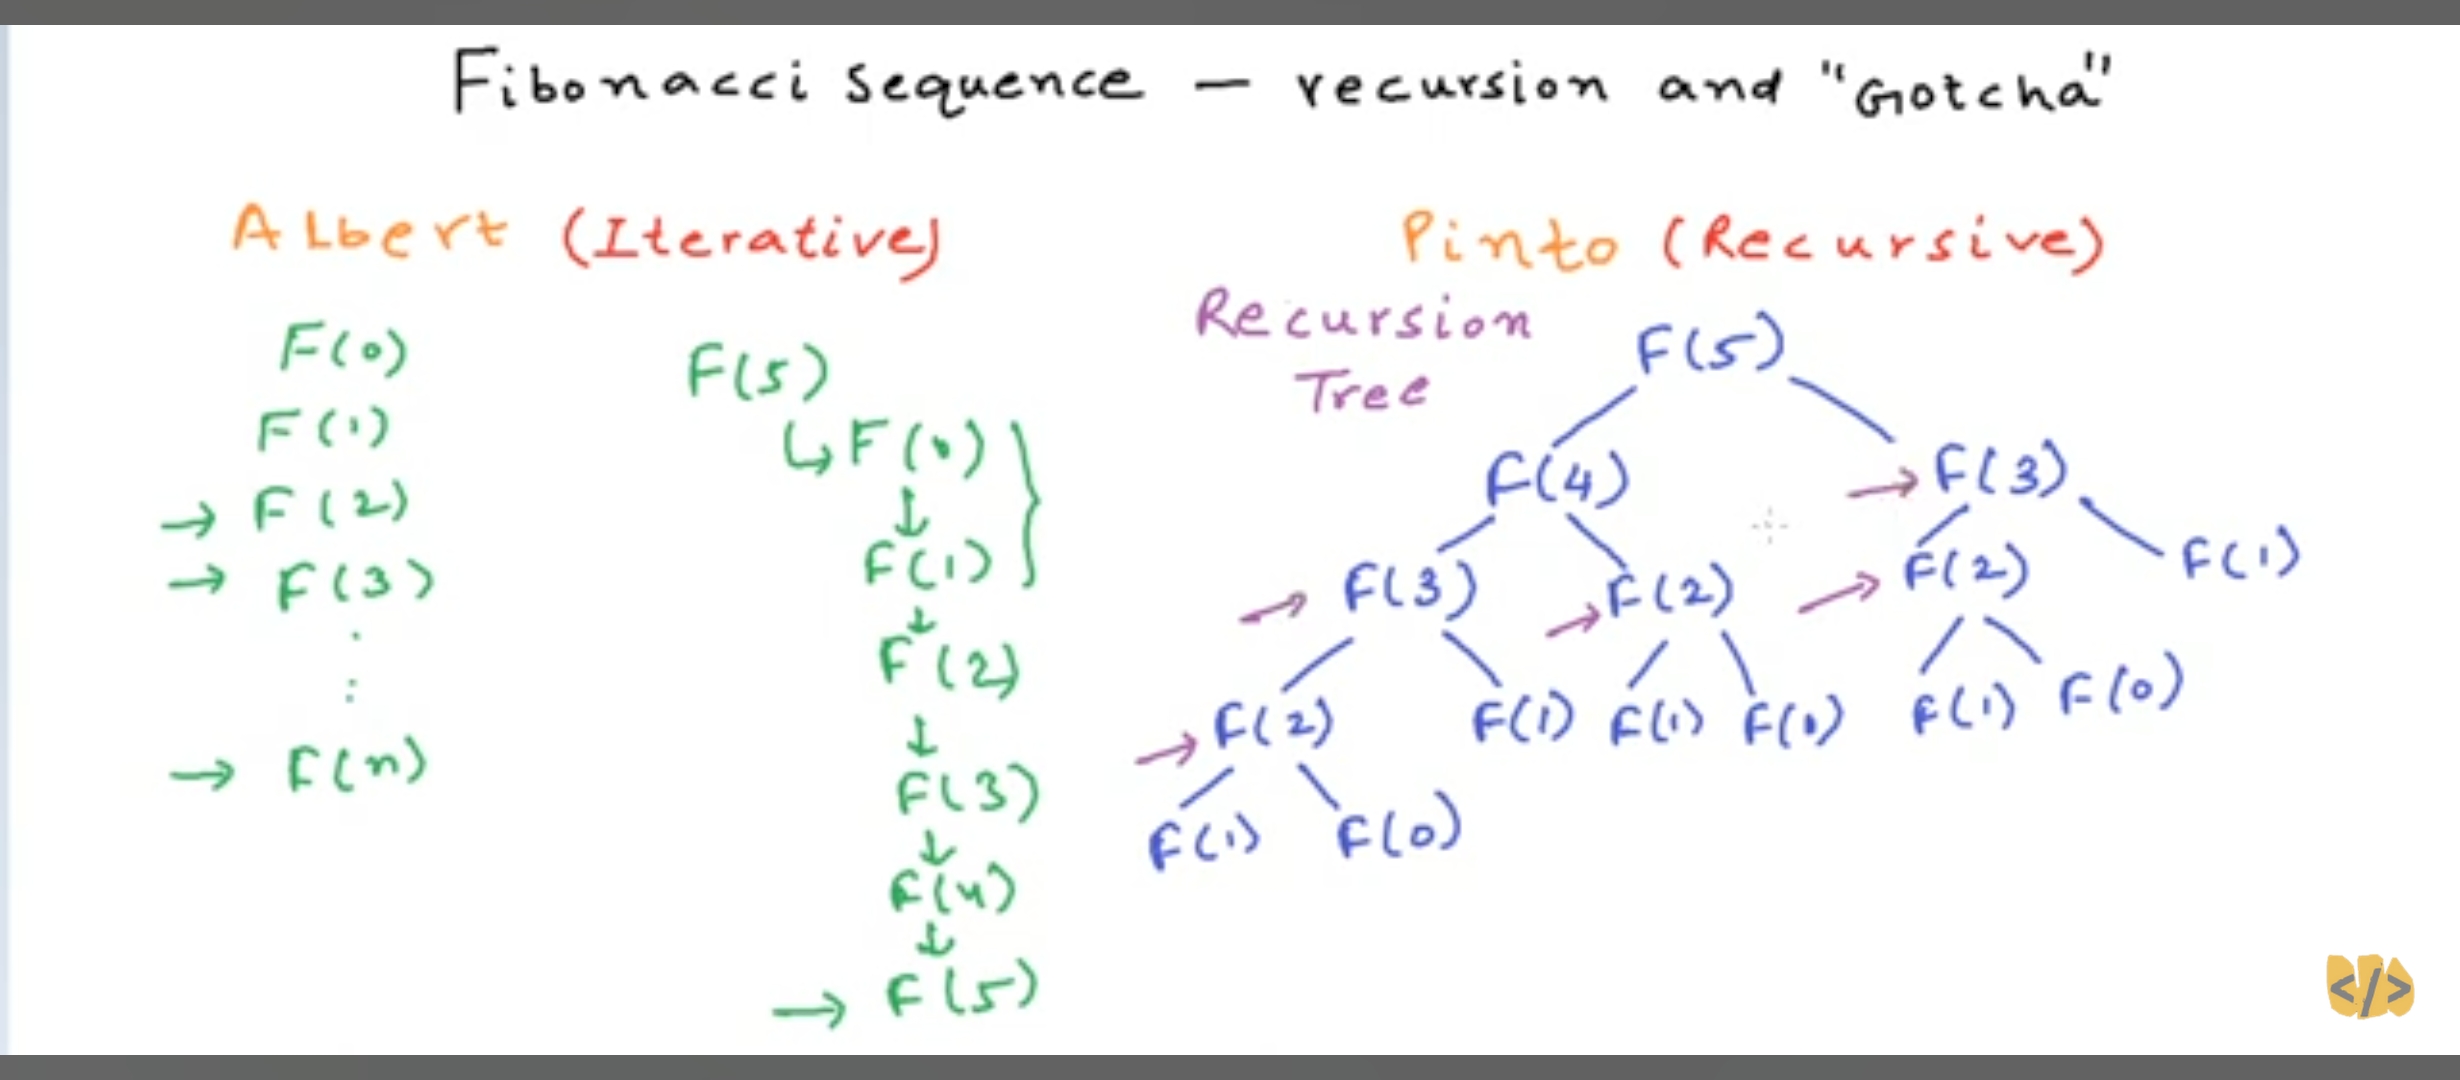 Fibonacci sequence – recursion and "Gotcha"
Albert (Iterative)
F(0)
F(1)
→ F(2)
→ F(3)
.
:
→ F(n)
F(5)
↳ F(0) }
↓
F(1)
↓
F(2)
↓
F(3)
↓
F(4)
↓
→ F(5)
Pinto (Recursive)
Recursion
Tree
F(5)
F(4) → F(3)
→ F(3) → F(2) → F(2) F(1)
→ F(2) F(1) F(1) F(0) F(1) F(0)
F(1) F(0)
</>